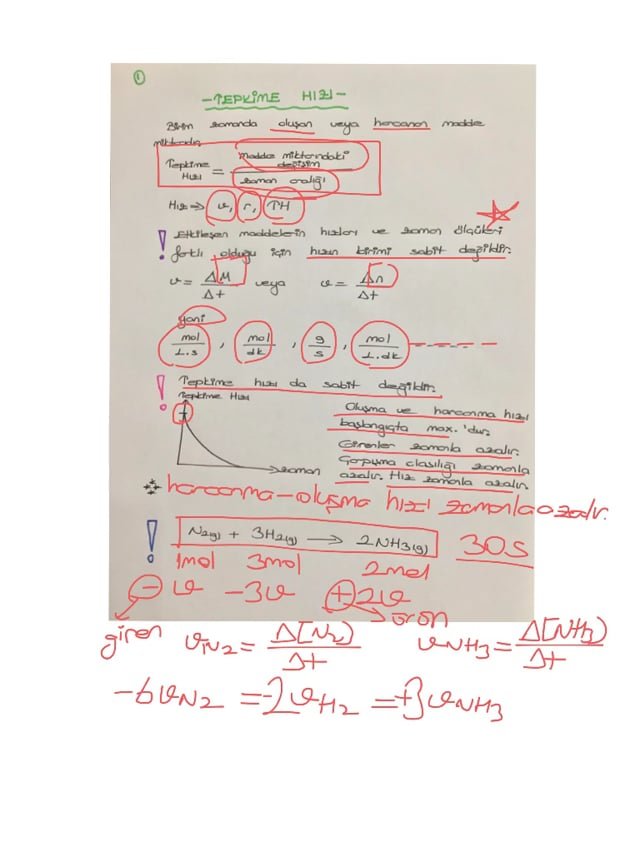 ①
-TEPKİME HIZI-
Birim zamanda oluşan veya harcanan madde
miktarıdır.
Tepkime Hızı = madde miktarındaki değişim / zaman aralığı
Hız → v, r, TH
! Etkileşen maddelerin hızları ve zaman ölçüleri
farklı olduğu için hızın birimi sabit değildir.
v = ΔM/Δt veya v = Δn/Δt
yani
mol/L.s , mol/dk , g/s , mol/L.dk
! Tepkime hızı da sabit değildir.
Tepkime Hızı
zaman
Oluşma ve harcanma hızı
başlangıçta max.'dur.
Girenler zamanla azalır.
Çarpışma olasılığı zamanla
azalır. Hız zamanla azalır.
harcanma-oluşma hızı zamanla azalır.
! N2(g) + 3H2(g) → 2NH3(g) 30s
1mol 3mol 2mol
- v -3v + 2v
giren oran
vN2 = Δ[N2]/Δt vNH3 = Δ[NH3]/Δt
-6vN2 = -2vH2 = +3vNH3